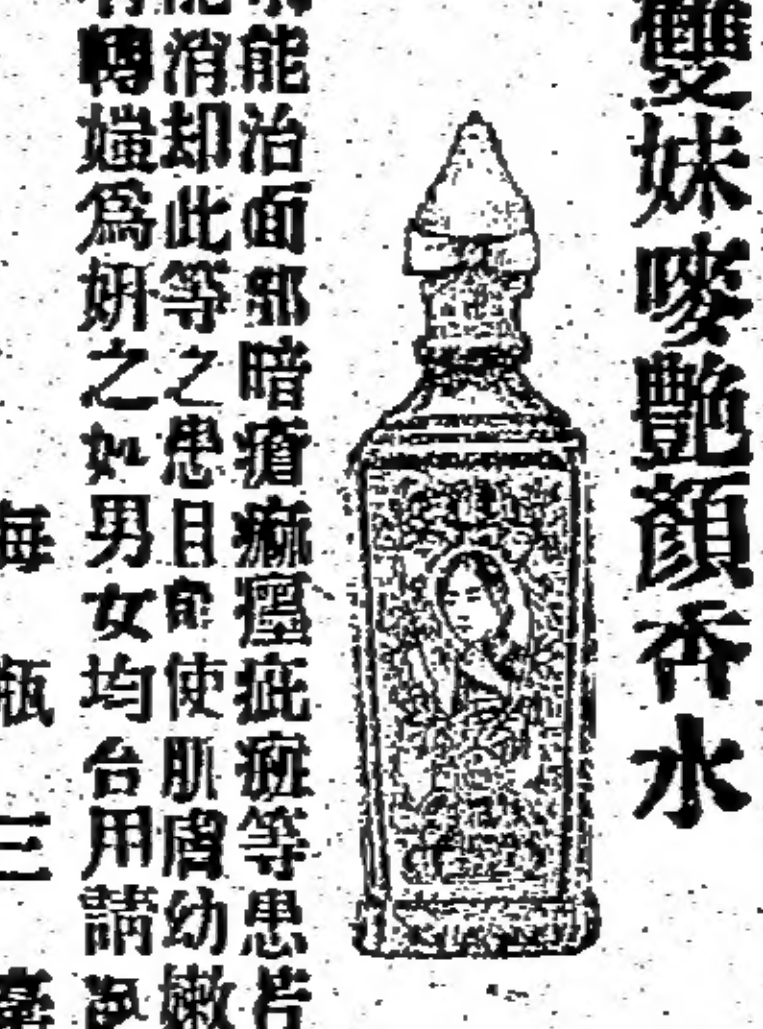 雙妹嘜艷顏香水
能治面部暗瘡癲瘂疵斑等患若
消却此等之患且能使肌膚幼嫩
轉媸為妍之妙男女均合用請
每瓶三毫